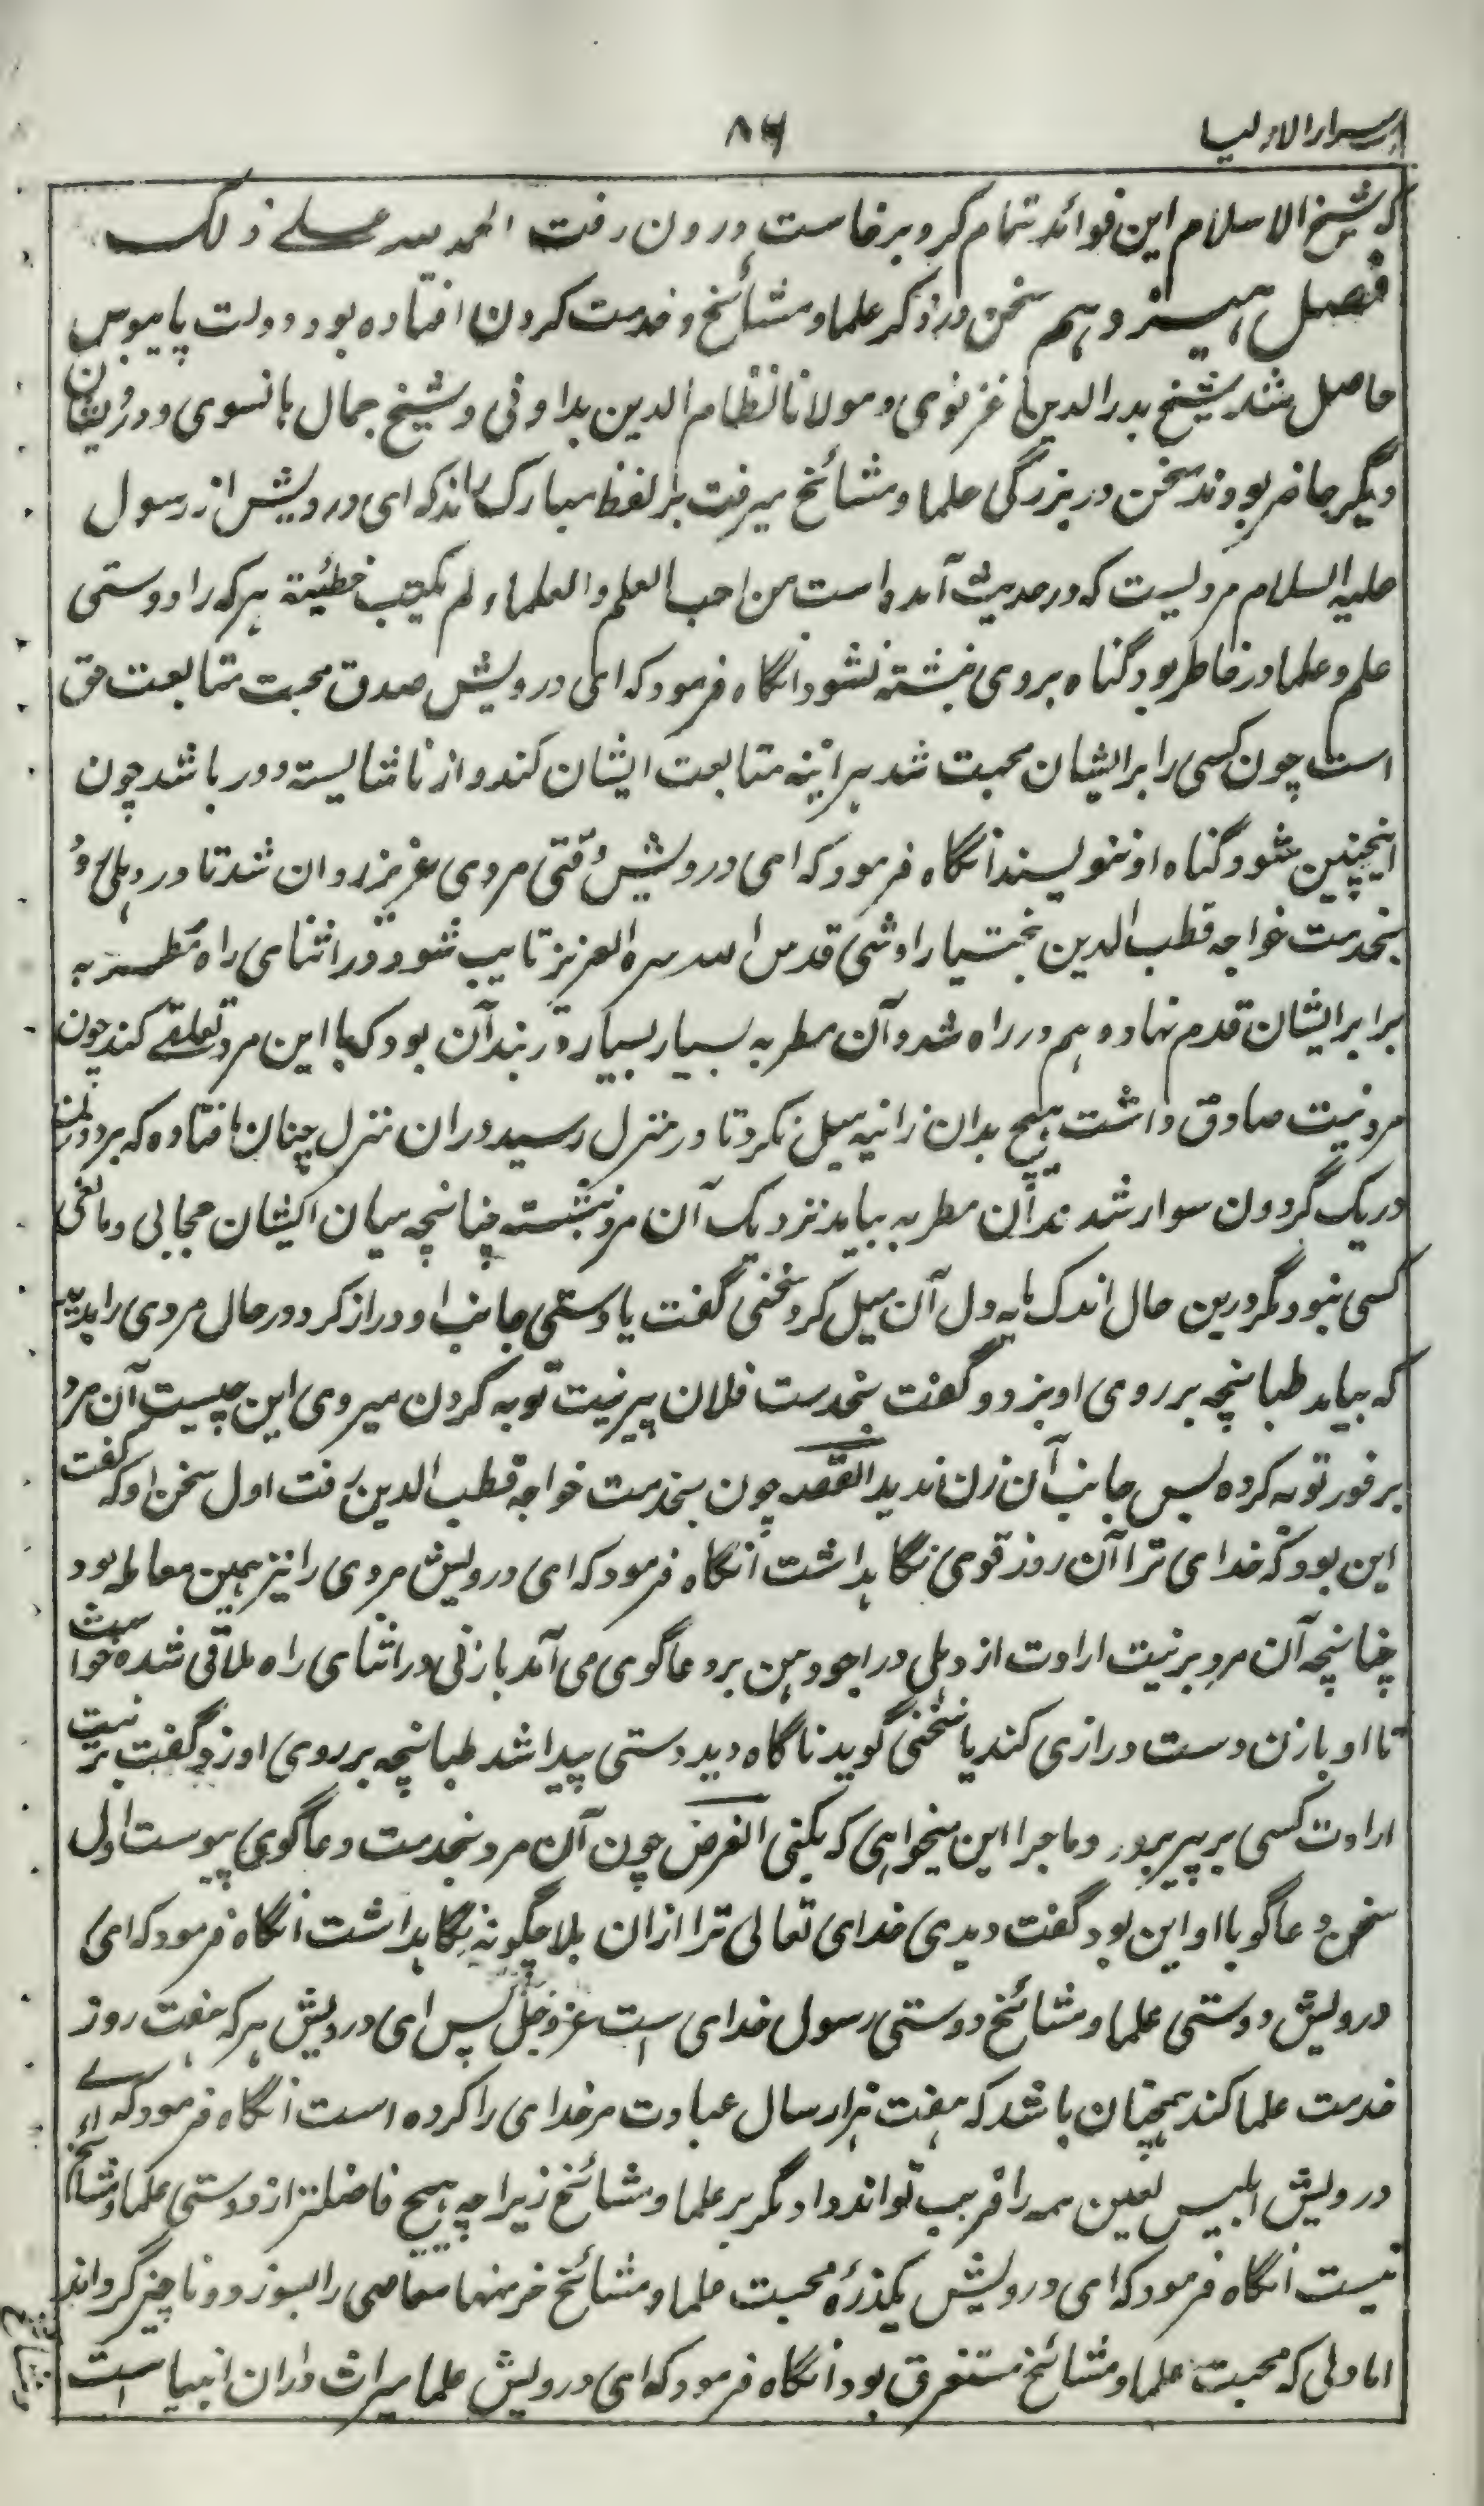 اسرار الاولیا
۸۶
که شیخ الاسلام این فوائد تمام کرد برخاست درون رفت الحمد لله علی ذلک
فصل هیزدهم سخن در ذکر علما و مشائخ و خدمت کردن افتاده بود دولت پایبوس
حاصل شد شیخ بدرالدین غزنوی و مولانا نظام الدین بداونی و شیخ جمال هانسوی و درویشان
دیگر حاضر بودند سخن در بزرگی علما و مشائخ میرفت بر لفظ مبارک راند که ای درویش از رسول
علیه السلام مرویست که در حدیث آمده است من احب العلم والعلماء لم یکتب خطیئة هرکه را دوستی
علم و علما در خاطر بود گناه بروی نبشته نشود انگاه فرمود که ای درویش صدق محبت متابعت حق
است چون کسی را بر ایشان محبت شد هر آئینه متابعت ایشان کند و از ناشایسته دور باشد چون
اینچنین شود گناه او ننویسند انگاه فرمود که ای درویش وقتی مردی عزیز روان شد تا در دهلی و
بخدمت خواجه قطب الدین بختیار اوشی قدس الله سره العزیز تایب شود در اثنای راه مطربه
برابر ایشان قدم نهاد و هم در راه شد و آن مطربه بسیار بسیار در بند آن بود که با این مرد تعلقی کند چون
مرد نیت صادق داشت هیچ بدان زانیه میل نکرد تا در منزل رسید در ان منزل چنان افتاده که هر دو تن
در یک گردون سوار شدند آن مطربه بیامد نزدیک آن مرد نشسته چنانچه میان ایشان حجابی و مانعی
کسی نبود مگر درین حال اندک مایه دل آن میل کرد سخنی گفت یا دستی جانب او دراز کرد در حال مردی را بدید
که بیامد طبانچه بر روی او بزد و گفت بخدمت فلان پیر نیت توبه کردن میروی این چیست آن مرد
بر فور توبه کرده پس جانب آن زن ندید القصه چون بخدمت خواجه قطب الدین رفت اول سخن او که گفت
این بود که خدای ترا آن روز قوی نگاهداشت انگاه فرمود که ای درویش مردی را نیز همین معامله بود
چنانچه آن مرد بر نیت ارادت از دهلی در اجودهن بر دعاگوی می آمد با زنی در اثنای راه ملاقی شده خواست
تا او با زن دست درازی کند یا سخنی گوید ناگاه دید دستی پیدا شد طبانچه بر روی او زد و گفت بر نیت
ارادت کسی بر پیر برود و ماجرا این میخواهی که بکنی الغرض چون آن مرد بخدمت دعاگوی پیوست اول
سخن دعاگو با او این بود گفت دیدی خدای تعالی ترا ازان بلا چگونه نگاهداشت انگاه فرمود که ای
درویش دوستی علما و مشائخ دوستی رسول خدای است عز و جل پس ای درویش هرکه هفت روز
خدمت علما کند همچنان باشد که هفت هزار سال عبادت مر خدای را کرده است انگاه فرمود که ای
درویش ابلیس لعین همه را فریب تواند داد مگر بر علما و مشائخ زیرا چه هیچ فاضلتر از دوستی علما و مشائخ
نیست انگاه فرمود که ای درویش یکذره محبت علما و مشائخ خرمنها معاصی را بسوزد و ناچیز گرداند
اما دلی که محبت علما و مشائخ مستغرق بود انگاه فرمود که ای درویش علما میراث داران انبیا است